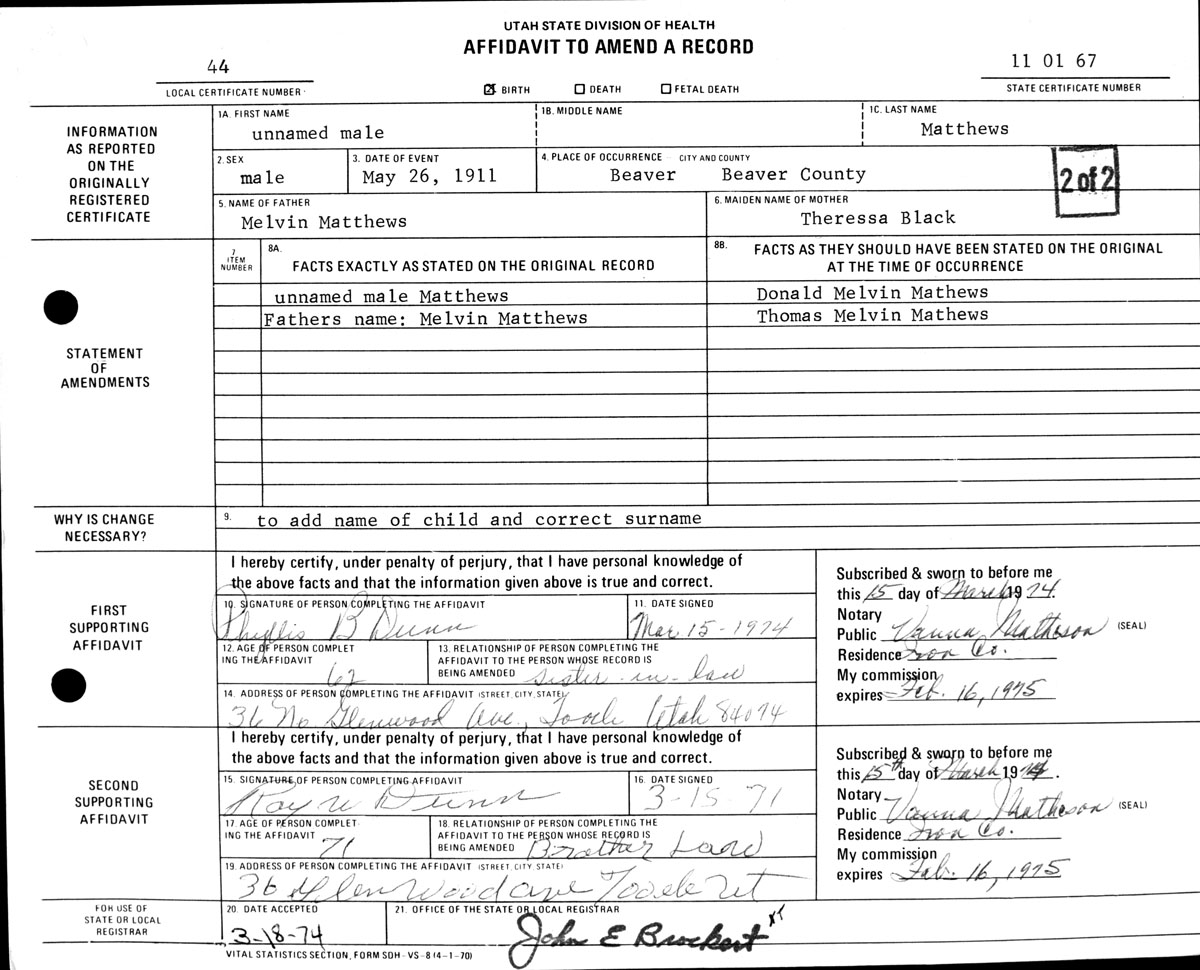 UTAH STATE DIVISION OF HEALTH
AFFIDAVIT TO AMEND A RECORD
44
LOCAL CERTIFICATE NUMBER
☒ BIRTH ☐ DEATH ☐ FETAL DEATH
11 01 67
STATE CERTIFICATE NUMBER
INFORMATION
AS REPORTED
ON THE
ORIGINALLY
REGISTERED
CERTIFICATE
1A. FIRST NAME
unnamed male
1B. MIDDLE NAME
1C. LAST NAME
Matthews
2. SEX
male
3. DATE OF EVENT
May 26, 1911
4. PLACE OF OCCURRENCE - CITY AND COUNTY
Beaver Beaver County
2 of 2
5. NAME OF FATHER
Melvin Matthews
6. MAIDEN NAME OF MOTHER
Theressa Black
STATEMENT
OF
AMENDMENTS
7
ITEM
NUMBER
8A.
FACTS EXACTLY AS STATED ON THE ORIGINAL RECORD
8B. FACTS AS THEY SHOULD HAVE BEEN STATED ON THE ORIGINAL
AT THE TIME OF OCCURRENCE
unnamed male Matthews
Donald Melvin Mathews
Fathers name: Melvin Matthews
Thomas Melvin Mathews
WHY IS CHANGE
NECESSARY?
9. to add name of child and correct surname
FIRST
SUPPORTING
AFFIDAVIT
I hereby certify, under penalty of perjury, that I have personal knowledge of
the above facts and that the information given above is true and correct.
10. SIGNATURE OF PERSON COMPLETING THE AFFIDAVIT
Phyllis B Dunn
11. DATE SIGNED
Mar 15-1974
12. AGE OF PERSON COMPLET
ING THE AFFIDAVIT
62
13. RELATIONSHIP OF PERSON COMPLETING THE
AFFIDAVIT TO THE PERSON WHOSE RECORD IS
BEING AMENDED sister-in-law
14. ADDRESS OF PERSON COMPLETING THE AFFIDAVIT (STREET, CITY, STATE)
36 No Glenwood Ave., Tooele Utah 84074
Subscribed & sworn to before me
this 15 day of March 1974.
Notary
Public Vanna Matheson (SEAL)
Residence Iron Co.
My commission
expires Feb. 16, 1975
SECOND
SUPPORTING
AFFIDAVIT
I hereby certify, under penalty of perjury, that I have personal knowledge of
the above facts and that the information given above is true and correct.
15. SIGNATURE OF PERSON COMPLETING AFFIDAVIT
Roy W Dunn
16. DATE SIGNED
3-15-71
17. AGE OF PERSON COMPLET
ING THE AFFIDAVIT
71
18. RELATIONSHIP OF PERSON COMPLETING THE
AFFIDAVIT TO THE PERSON WHOSE RECORD IS
BEING AMENDED Brother Law
19. ADDRESS OF PERSON COMPLETING THE AFFIDAVIT (STREET, CITY, STATE)
36 Glenwood ave Tooele Ut
Subscribed & sworn to before me
this 15th day of March 1974.
Notary
Public Vanna Matheson (SEAL)
Residence Iron Co.
My commission
expires Feb. 16, 1975
FOR USE OF
STATE OR LOCAL
REGISTRAR
20. DATE ACCEPTED
3-18-74
21. OFFICE OF THE STATE OR LOCAL REGISTRAR
John E Brockert
VITAL STATISTICS SECTION, FORM SDH-VS-8 (4-1-70)